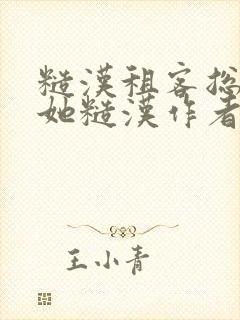 糙漢租客总
她糙漢作者
王小青